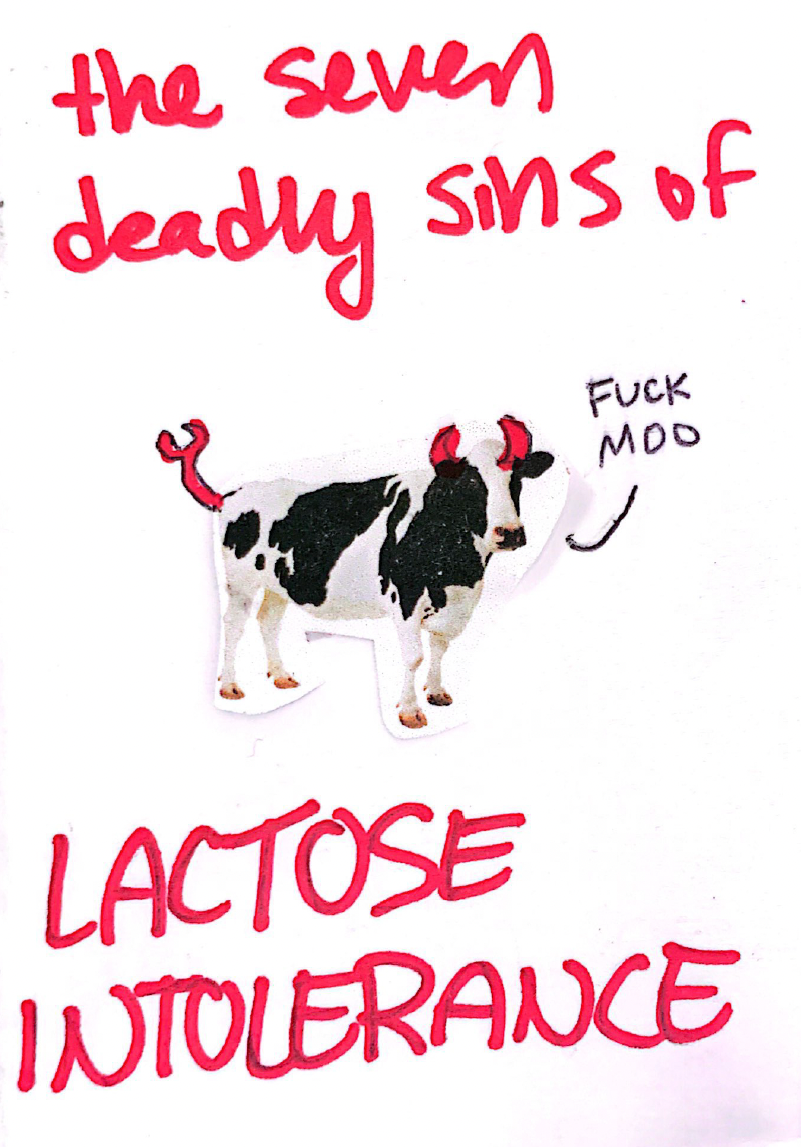 the seven
deadly sins of
FUCK
MOO
LACTOSE
INTOLERANCE